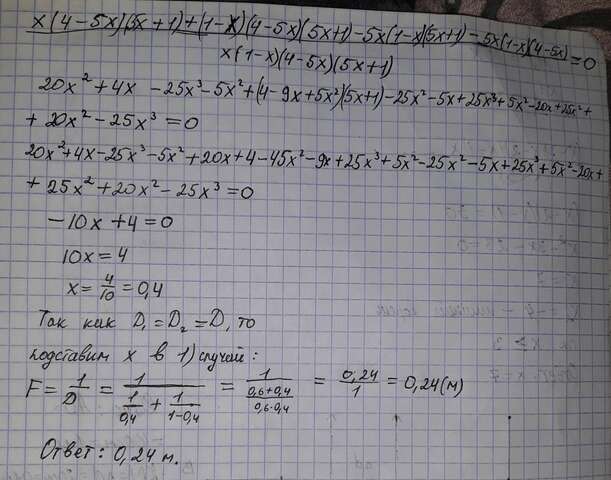 x(4-5x)(5x+1)+(1-x)(4-5x)(5x+1)-5x(1-x)(5x+1)-5x(1-x)(4-5x) =0
x(1-x)(4-5x)(5x+1)
20x²+4x -25x³-5x²+(4-9x+5x²)(5x+1)-25x²-5x+25x³+5x²-20x+25x²+
+20x²-25x³=0
20x²+4x-25x³-5x²+20x+4-45x²-9x+25x³+5x²-25x²-5x+25x³+5x²-20x+
+25x²+20x²-25x³=0
-10x+4=0
10x=4
x=4/10=0,4
Так как D₁=D₂=D, то
подставим x в 1) случай:
F=1/D=1/(1/0,4+1/(1-0,4))=1/((0,6+0,4)/(0,6·0,4))=0,24/1=0,24(м)
Ответ: 0,24 м.